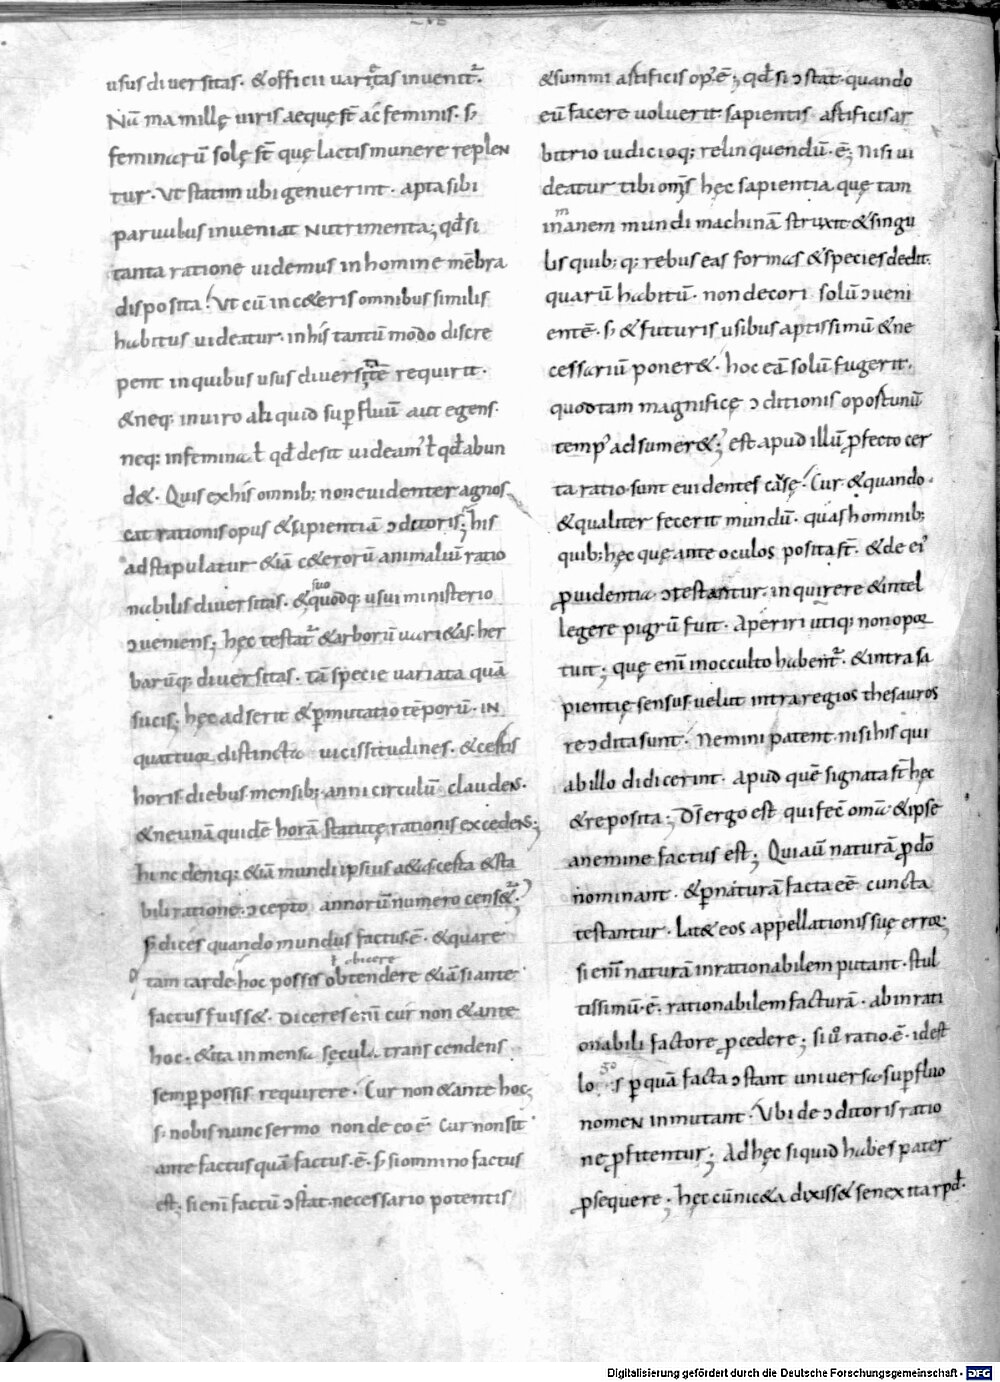 usus diuersitas. &officii uari&as inuenit᷑.
Nū ma millę uiris aequę st̄ ac̄ feminis. s;
feminarū solę st̄ quę lactis munere replen
tur. Ut statim ubi genuerint. apta sibi
paruulus inueniat nutrimenta; qđ si
tanta ratione uidemus in homine mēbra
disposita. Ut cū in c&eris omnibus similis
habitus uideatur. in his tantū modo discre
pent in quibus usus diuersitatē requirit.
&neq; in uiro aliquid suꝑfluū aut egens.
neq; in femina ł qđ desit uideam᷑ ł qđ abun
d&. Quis ex his omnib; non euidenter agnos
cat rationis opus &sapientiā ɔditoris; his
adstipulatur &iā c&erorū animaliū ratio
nabilis diuersitas. &quodq; suo usui ministerio
ɔueniens; hęc testat᷑ &arborū uari&as. her
barūq; diuersitas. tā specie uariata quā
sucis; hęc adserit &ꝑmutatio tēporū. in
quattuor distincta uicissitudines. &certis
horis diebus mensib; anni circulū claudens.
&ne unā quidē horā statutę rationis excedens;
hinc deniq; &iā mundi ipsius a&as certa &sta
bili ratione. ɔcepto annorū numero cens&᷑.
s; dices quando mundus factus.ē. &quare
tam tarde hoc possis obtendere ł obicere &iā si ante
factus fuiss&. Diceres eni᷑ cur non &ante
hoc. &ita inmensa sęcula transcendens
semꝑ possis requirere. Cur non &ante hoc;
s; nobis nunc sermo non de eo ē. Cur non sit
ante factus quā factus.ē. s; si omnino factus
est; si enī factū ɔstat. necessario potentis
&summi artificis op᷒ ē; qđ si ɔstat. quando
eū facere uoluerit. sapientis artificis ar
bitrio iudicioq; relinquendū.ē; Nisi ui
deatur tibi om̄s hęc sapientia quę tam
inmanem mundi machinā struxit &singu
lis quib;q; rebus eas formas &species dedit.
quarū habitū. non decori solū ɔueni
entē. s; &futuris usibus aptissimū &ne
cessariū poner&. hoc eā solū fugerit.
quod tam magnificę ɔditionis oportunū
temp᷒ adsumer&; est apud illū ꝓfecto cer
ta ratio. sunt euidentes causę. Cur &quando.
&qualiter fecerit mundū. quas hominib;
quib; hęc quę ante oculos posita st̄. &de ei᷒
ꝓuidentia ɔtestantur. inquirere &intel
legere pigrū fuit. Aperiri utiq; non opor
tuit; quę enī in occulto habent᷑. &intra sa
pientię sensus uelut intra regios thesauros
reɔdita sunt. Nemini patent nisi his qui
ab illo didicerint. apud quē signata st̄ hęc
&reposita; Dš ergo est qui fec̄ omīa &ipse
a nemine factus est; Qui aū naturā ꝓ dō
nominant. &ꝑ naturā facta eē cuncta
testantur. Lat& eos appellationis suę error;
si enī naturā inrationabilem putant. stul
tissimū.ē. rationabilem facturā. ab inrati
onabili factore ꝓcedere; si u̅ ratio.ē. id est
logos ꝑ quā facta ɔstant uniuersa. suꝑfluo
nomen inmutant. Ubi de ɔditoris ratio
ne ꝓfitentur; Ad hęc si quid habes pater
ꝓsequere; hęc cū nic&a dixiss& senex ita rp̄d.